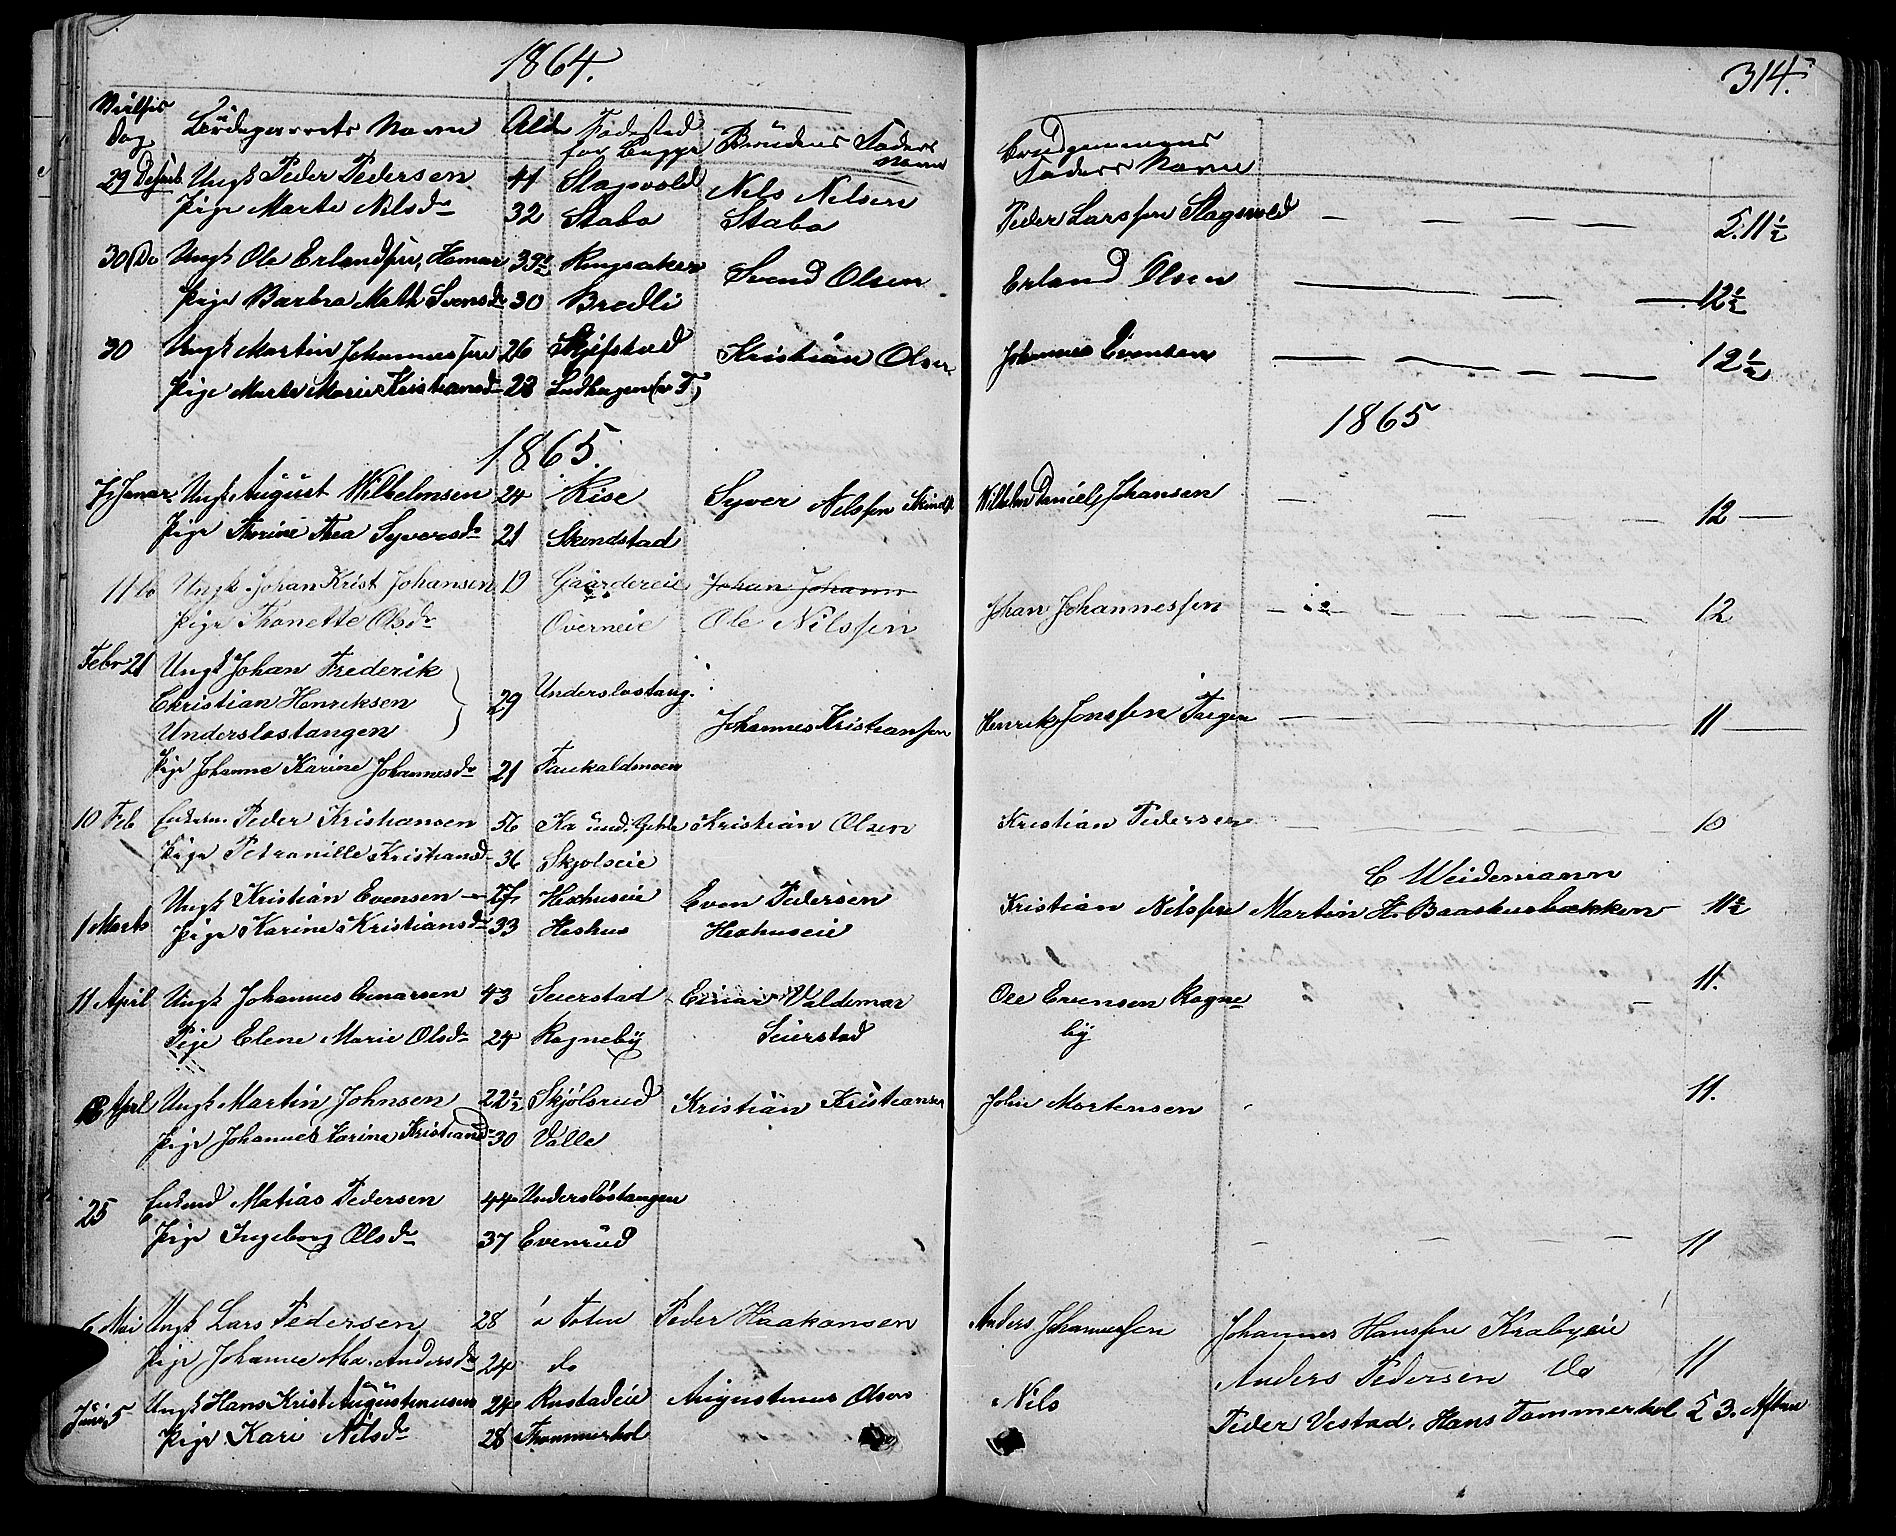 1864.
314.
Dag Navn Alder Fødested for Begge Brudens Faders Navn Brudgommens Faders Navn
29 Decemb. Ungk Peder Pedersen 41 Stagsvold Nils Nilsen Peder Larssen Stagsvold — — — — 5. 11 1/2
Pige Marte Nilsdr 32 Stabo Stabo
30 Do Ungk Ole Erlandsen, Hamar 39 Ringsaker Svend Olsen Erland Olsen — — — — 12 1/2
Pige Barbra Math Svensdr 30 Bredli
30 Ungk Martin Johannessen 26 Skjefstad Kristian Olsen Johannes Evensen — — — — 12 1/2
Pige Marte Marie Kristiansdr 23
1865.
1865
7 Januar Ungk August Wilhelmsen 24 Kise Syver Nilssen Wilhelm Daniels Johansen — — — — 12 —
Pige Thorine Thea Syversdr 21 Skendstad
11 do Ungk Johan Krist Johansen 19 Gaardereie Johan Johann Johan Johannessen — — — — 12
Pige Thonette Olsdr Overneie Ole Nilssen
Febr 21 Ungk Johan Frederik
Christian Henriksen 29 Underslostang.
Underslostangen Johannes Kristianssen Henrik Jonssen — — — — 11 —
Pige Johanne Karine Johannesdr 21 Faukaldmoen
10 Feb Enkem. Peder Kristiansen 56 Kristian Olsen Kristian Pedersen — — — — 10
Pige Petronille Kristiansd 36 Skjolseie
C Weidemann
Ungk Kristian Evensen — 27 Hexhuseie Even Pedersen Kristian Nilssen Martin H. Baashusbakken 11 1/2
1 Marts Pige Karine Kristiansdr 33 Heshus Hexhuseie
11 April Ungk Johannes Einarsen 43 Seierstad Einar Valdemar Ole Evensen Rogne 11.
Pige Elene Marie Olsdr 24 Rogneby Seierstad by
18 April Ungk Martin Johnsen 22 1/2 Skjølsrud Kristian Kristiansen John Mortensen 11.
Pige Johannes Karine Kristiansdr 30 Valle
25 Enkmd Matias Pedersen 44 Underslöstangen
Pige Ingeborg Olsdr 37 Evenrud — — — — 11
6 Mai Ungk Lars Pedersen 28 Toten Peder Haakonsen Anders Johannessen Johannes Hanssen Krabyeie
Pige Johanne Ma. Andersdr 24 do Anders Pedersen do 11
Juni 5 Ungk Hans Krist Augustinusen 24 Rustadeie Augustinus Olsen Nils Peder Vestad, Hans Tommerhol 5 3. Aften
Pige Kari Nilsdr 28 Thommerhol